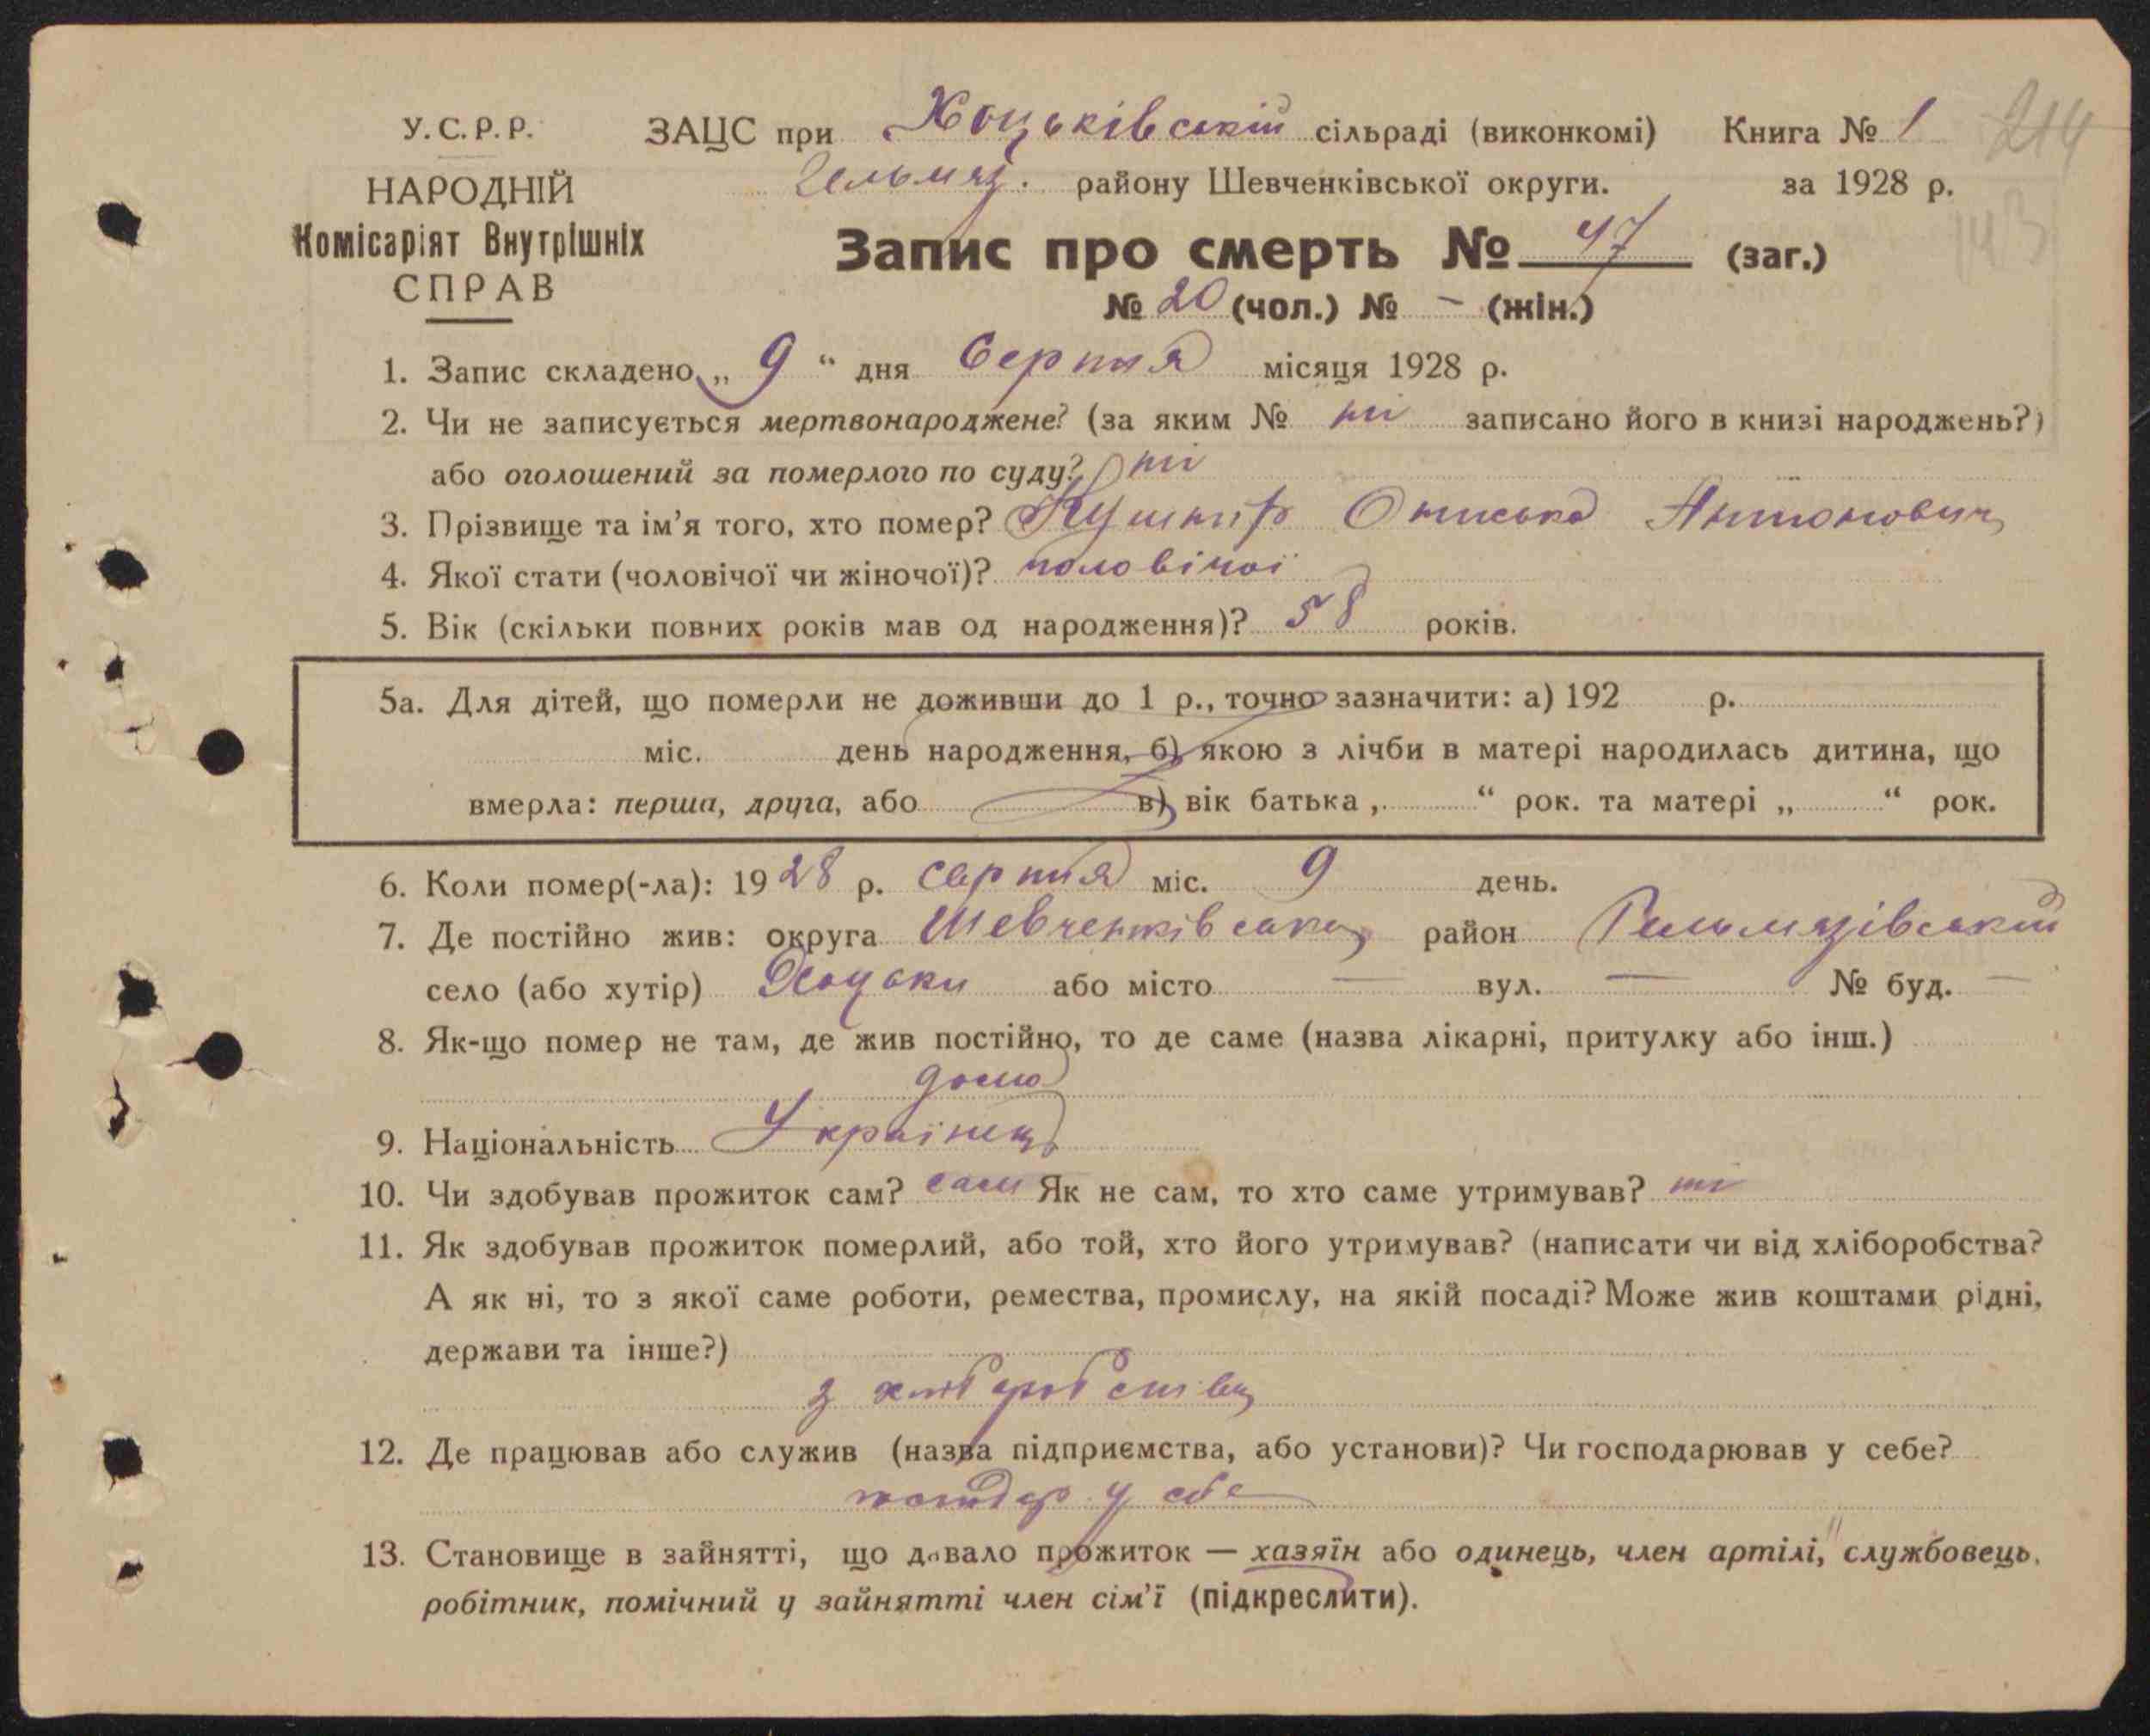 У.С.Р.Р. ЗАЦС при Хоцьківській сільраді (виконкомі) Книга № 1 214
НАРОДНІЙ Гельмяз. району Шевченківської округи. за 1928 р.
Комісаріят Внутрішніх Запис про смерть № 47 (заг.) 143
СПРАВ № 20 (чол.) № – (жін.)
1. Запис складено „ 9 “ дня Серпня місяця 1928 р.
2. Чи не записується мертвонароджене? (за яким № ні записано його в книзі народжень?)
або оголошений за померлого по суду? ні
3. Прізвище та ім’я того, хто помер? Кушнір Ониська Антонович
4. Якої стати (чоловічої чи жіночої)? чоловічої
5. Вік (скільки повних років мав од народження)? 58 років.
5а. Для дітей, що померли не доживши до 1 р., точно зазначити: а) 192 р.
міс. день народження, б) якою з лічби в матері народилась дитина, що
вмерла: перша, друга, або в) вік батька „ “ рок. та матері „ “ рок.
6. Коли помер(-ла): 1928 р. серпня міс. 9 день.
7. Де постійно жив: округа Шевченківська район Гельмязівський
село (або хутір) Хоцьки або місто — вул. — № буд. —
8. Як-що помер не там, де жив постійно, то де саме (назва лікарні, притулку або інш.)
дома
9. Національність Українець
10. Чи здобував прожиток сам? сам Як не сам, то хто саме утримував? ні
11. Як здобував прожиток померлий, або той, хто його утримував? (написати чи від хліборобства?
А як ні, то з якої саме роботи, ремества, промислу, на якій посаді? Може жив коштами рідні,
держави та інше?)
з хліборобства
12. Де працював або служив (назва підприємства, або установи)? Чи господарював у себе?
у себе
13. Становище в зайнятті, що давало прожиток — хазяїн або одинець, член артілі, службовець,
робітник, помічний у зайнятті член сім’ї (підкреслити).